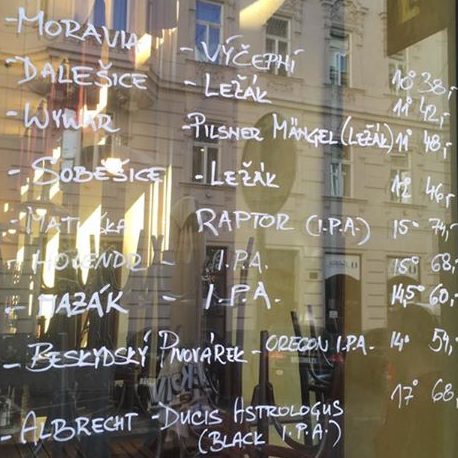 - MORAVIA - VÝČEPNÍ 10° 38,-
- DALEŠICE - LEŽÁK 11° 42,-
- WYWAR - PILSNER MÄNGEL (LEŽÁK) 11° 48,-
- SOBĚŠICE - LEŽÁK 12° 46,-
- MATUŠKA RAPTOR (I.P.A.) 15° 74,-
- HOLENDR - I.P.A. 15° 68,-
- MAZÁK - I.P.A. 14,5° 60,-
- BESKYDSKÝ PIVOVÁREK - OREGON I.P.A. 14° 54,-
- ALBRECHT - DUCIS ASTROLOGUS 17° 68,-
(BLACK I.P.A.)